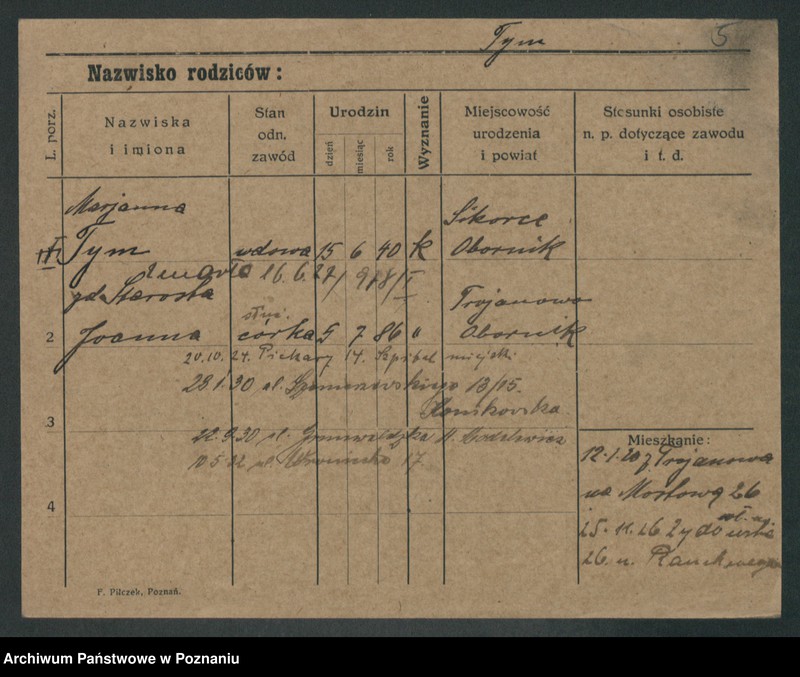 Tym 5
Nazwisko rodziców:
L. porz.
Nazwiska i imiona
Stan odn. zawód
Urodzin
dzień
miesiąc
rok
Wyznanie
Miejscowość urodzenia i powiat
Stosunki osobiste n. p. dotyczące zawodu i t. d.
Marjanna Sikorce
Tym wdowa 15 6 40 k Obornik
zmarła 16. 6. 27/ 918/I
gd. Starosta Trojanowo
służ.
2 Joanna córka 5 7 86 " Obornik
20.10.24. Piekary 14. Szpital miejski
28.1.30 ul. 13/15.
3
22.9.30 ul. Grunwaldzka
10.5.32 ul. 17
4
Mieszkanie:
12.1.20 z Trojanowa
na Mostową 26
25.11.26
26. u.
F. Pilczek, Poznań.
Archiwum Państwowe w Poznaniu